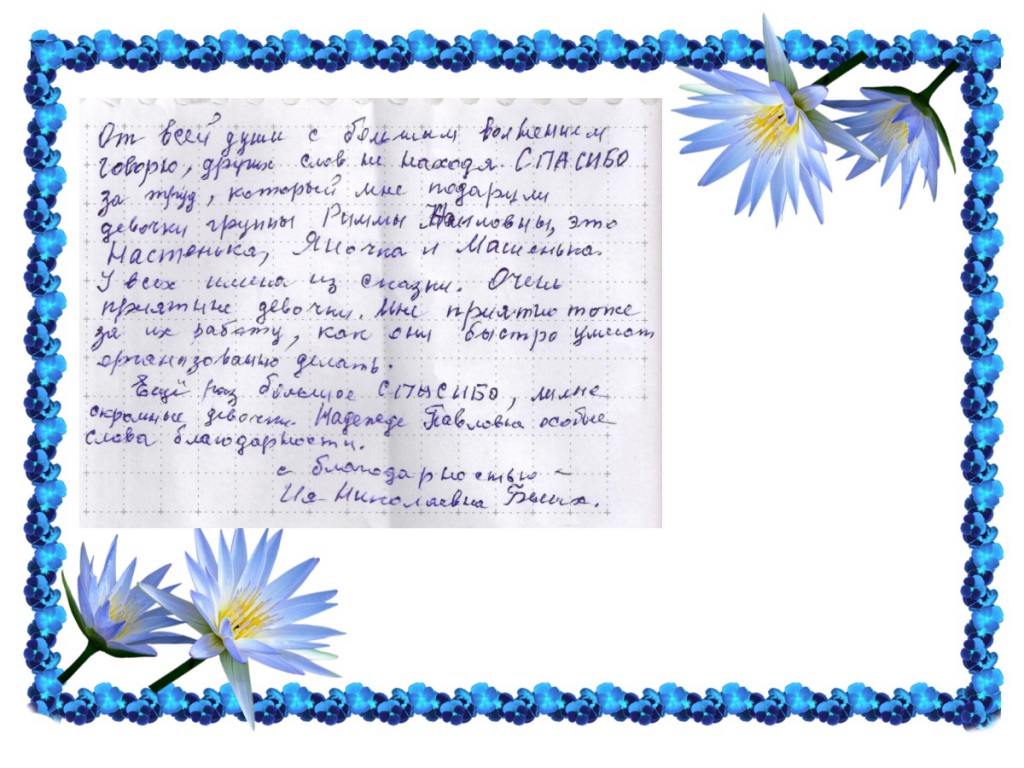 От всей души с большим волнением
говорю, других слов не находя СПАСИБО
за труд, который мне подарили
девочки группы Риммы Наиловны, это
Настенька, Яночка и Машенька.
У всех имена из сказки. Очень
приятные девочки. Мне приятно тоже
за их работу, как они быстро умеют
организованно делать.
Ещё раз большое СПАСИБО, милые
скромные девочки. Надежде Павловне особые
слова благодарности.
с благодарностью -
Ия Николаевна